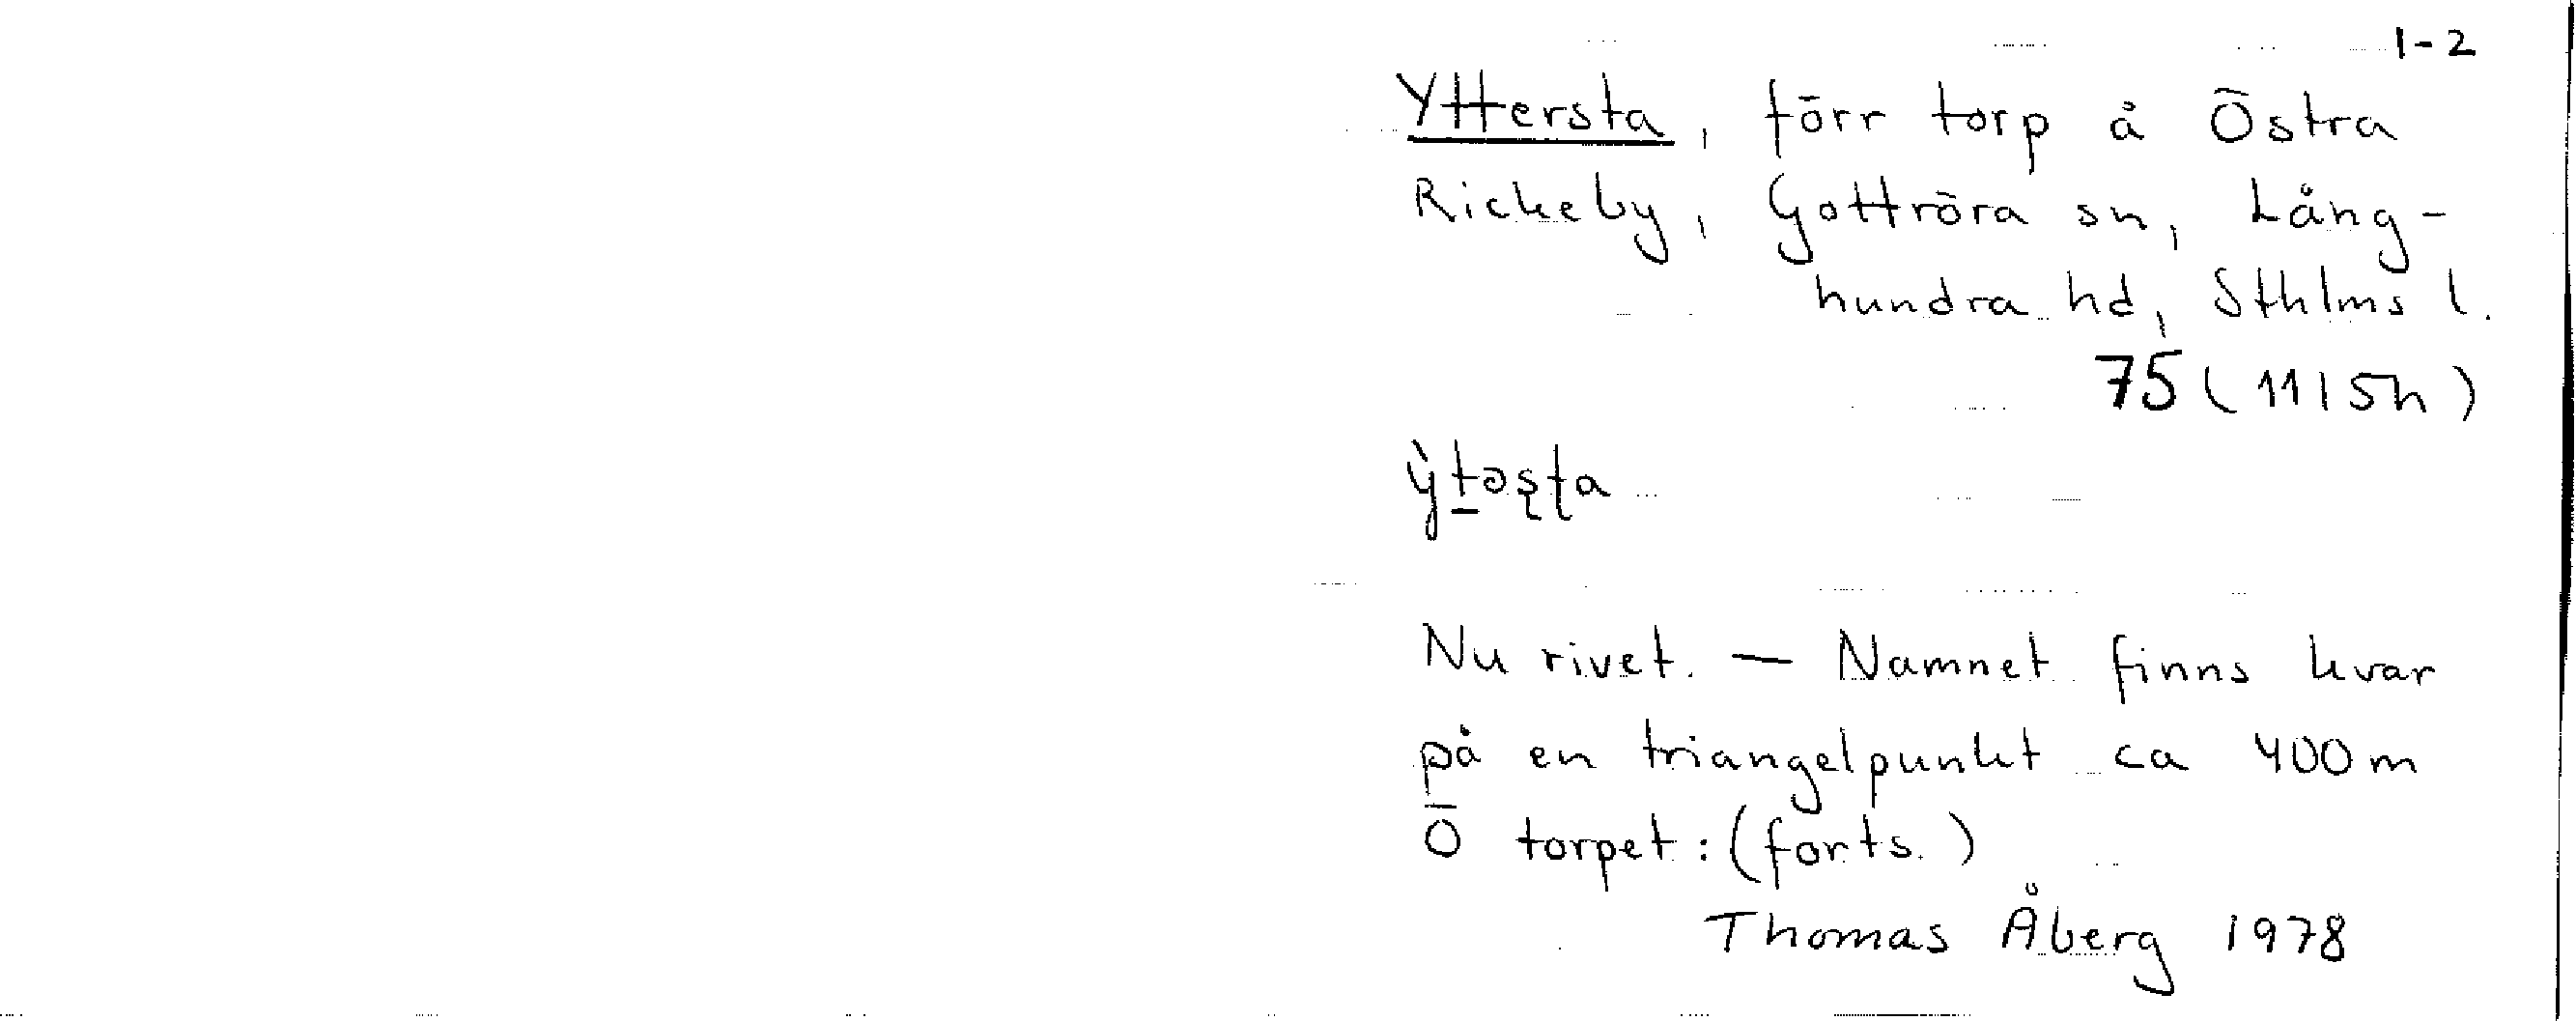 1-2
Yttersta, förr torp å Östra
Rickeby, Gottröra sn, Lång-
hundra hd, Sthlms l.
75 (11I5h)
ỳt̲əʂʈa
Nu rivet. — Namnet finns kvar
på en triangelpunkt ca 400 m
Ö torpet: (forts.)
Thomas Åberg 1978